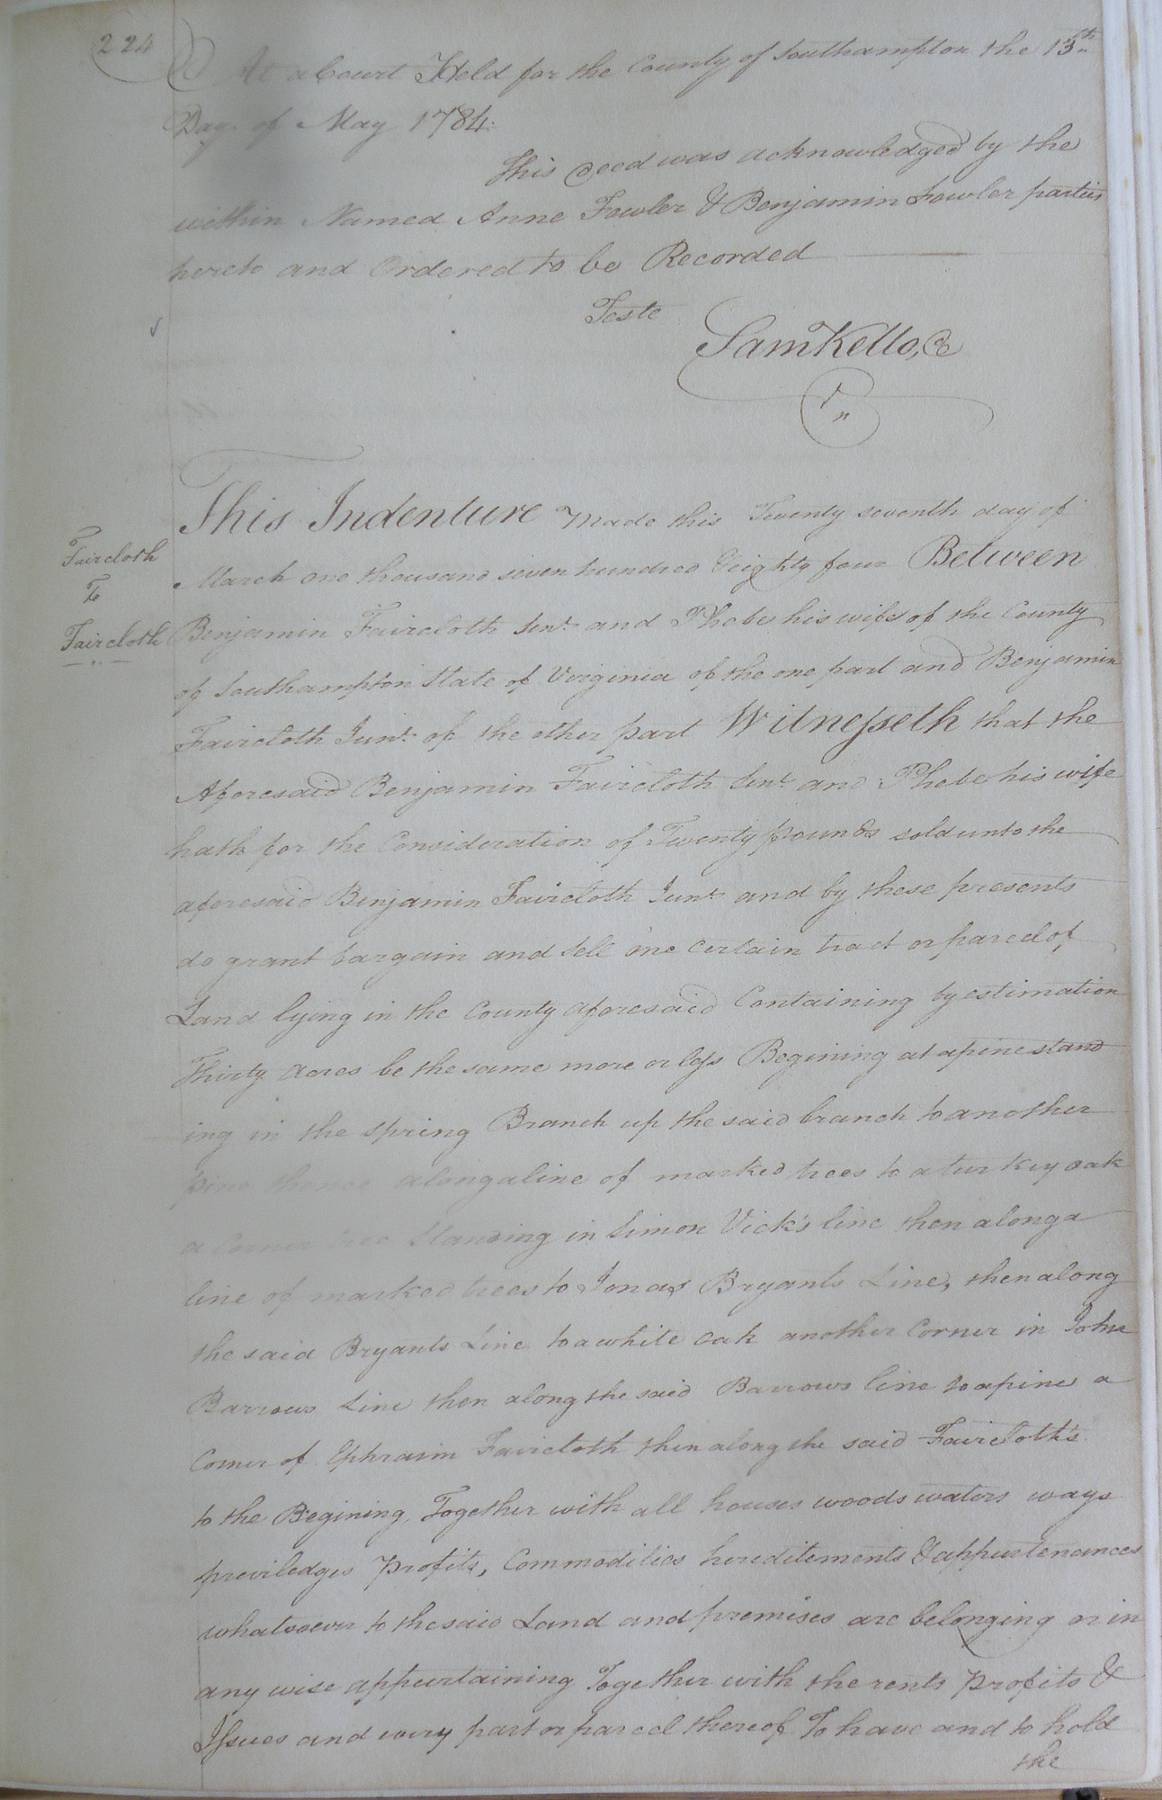 224
At a Court Held for the County of Southampton the 13th
Day of May 1784.
This Deed was acknowledged by the
within Named Anne Fowler & Benjamin Fowler parties
hereto and Ordered to be Recorded
Teste
Sam Kello, C
Faircloth
To
Faircloth
This Indenture Made this Twenty seventh day of
March one thousand seven hundred Eeighty four Between
Benjamin Faircloth Senr. and Phebe his wife of the County
of Southampton State of Virginia of the one part and Benjamin
Faircloth Junr. of the other part Witnesseth that the
Aforesaid Benjamin Faircloth Senr. and Phebe his wife
hath for the Consideration of Twenty pounds sold unto the
aforesaid Benjamin Faircloth Junr. and by these presents
do grant bargain and Sell one certain tract or parcel of
Land lying in the County aforesaid Containing by estimation
Thirty Acres be the same more or less Begining at a pine stand
ing in the Spring Branch up the said branch to another
pine thence along a line of marked trees to a turkey oak
a Corner tree Standing in Simon Vick's line then along a
line of marked trees to Jonas Bryants Line, then along
the said Bryants Line to a white oak another Corner in John
Barrows Line then along the said Barrows line to a pine a
Corner of Ephraim Faircloth then along the said Faircloth's
to the Begining, Together with all houses woods waters ways
previledges Profits, Commodities hereditements & appurtenances
whatsoever to the said Land and premises are belonging or in
any wise appurtaining Together with the rents Profits &
Issues and every part or parcel thereof To have and to hold
the